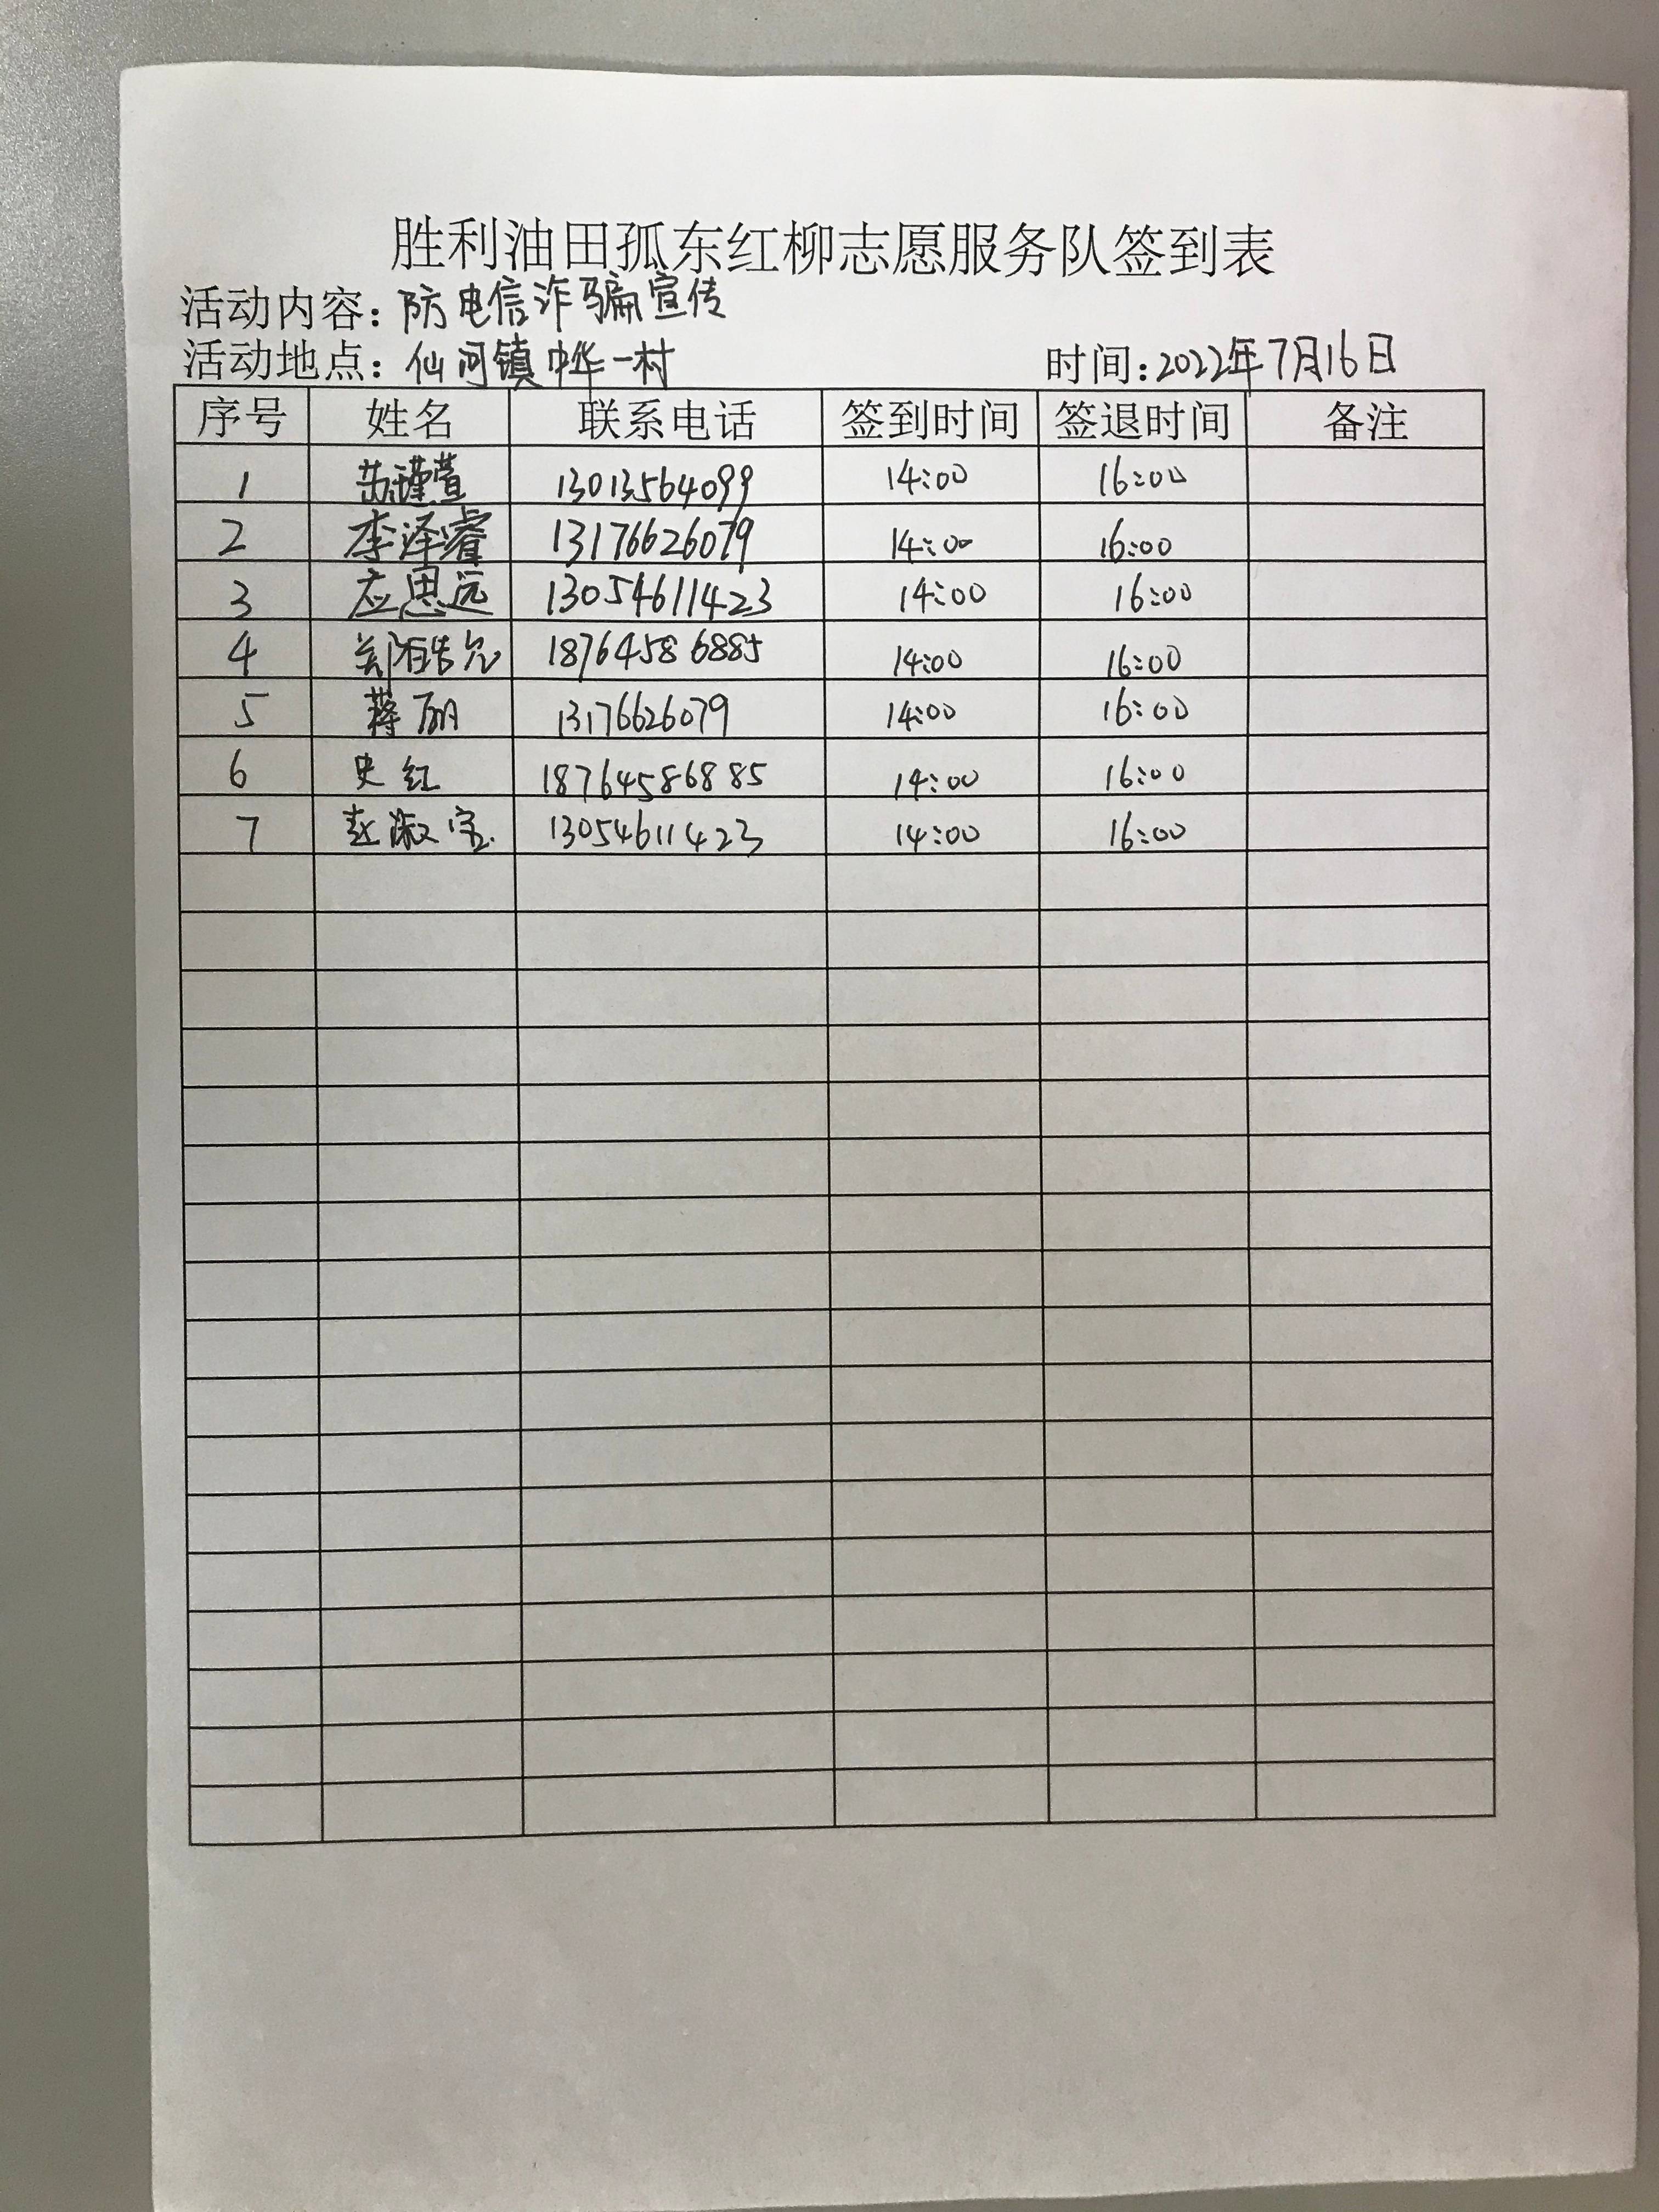 胜利油田孤东红柳志愿服务队签到表
活动内容：防电信诈骗宣传
活动地点：仙河镇中华一村 时间：2022年7月16日
序号 姓名 联系电话 签到时间 签退时间 备注
1 苏瑾萱 13013564099 14:00 16:00
2 李泽睿 13176626079 14:00 16:00
3 应思远 13054611423 14:00 16:00
4 18764586885 14:00 16:00
5 蒋丽 13176626079 14:00 16:00
6 史红 18764586885 14:00 16:00
7 赵淑宝 13054611423 14:00 16:00